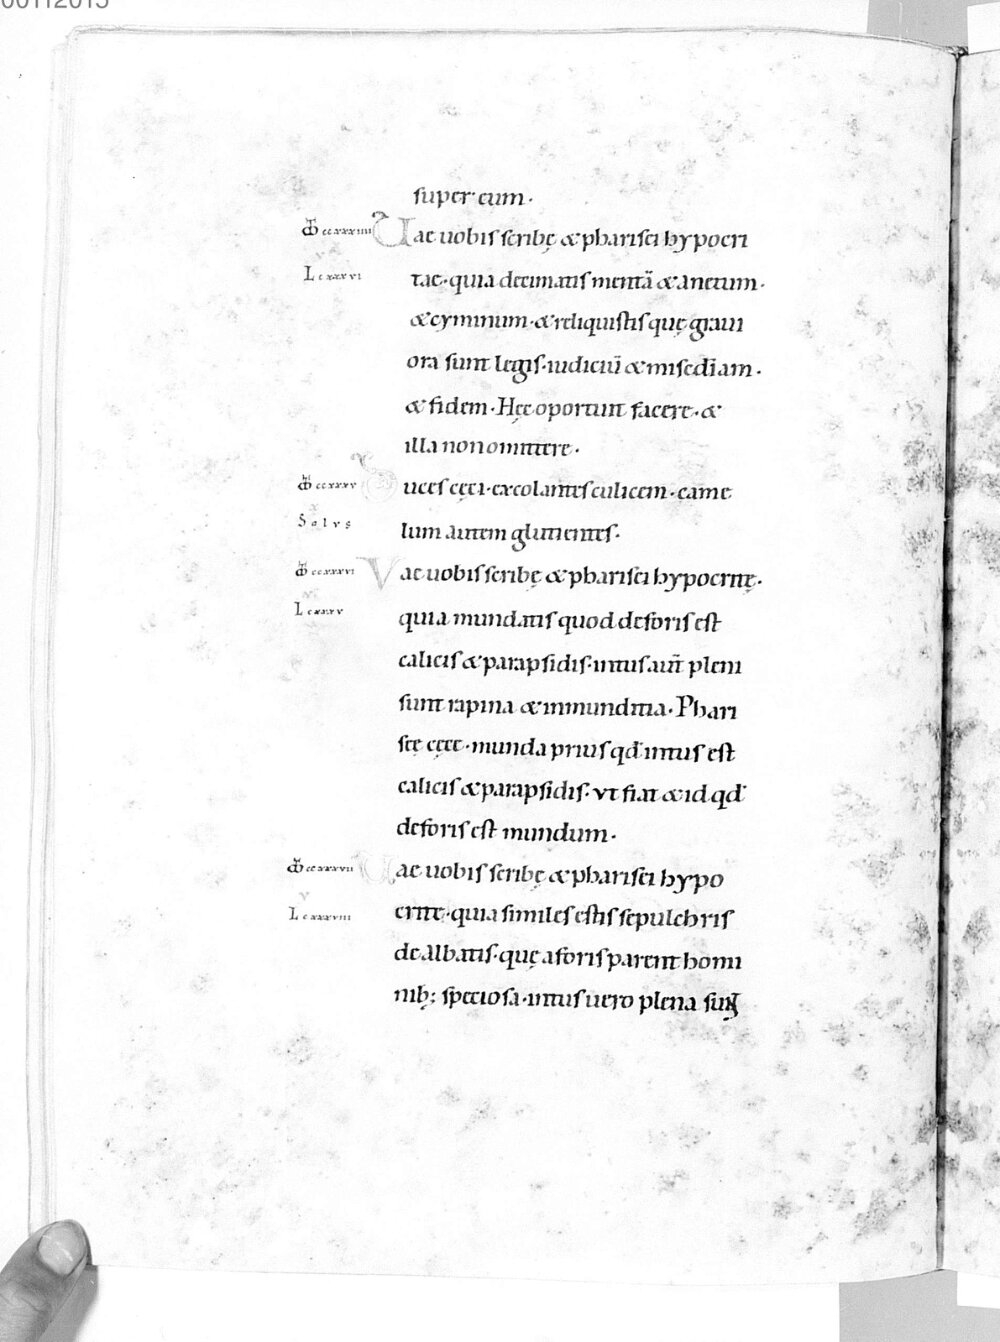 00112015
super eum·
ccxxxiiii Uae uobis scribę & pharisei hypocri
L cxxxvi tae· quia decimatis mentā & anetum·
& cyminum· & reliquistis quę graui
ora sunt legis· iudiciū & misedīam·
& fidem· Hęc oportuit facere· &
illa non omittere·
ccxxxv Duces cęci· excolantes culicem· came
Solus lum autem glutientes·
ccxxxvi Vae uobis scribę & pharisei hypocritę·
L cxxxv quia mundatis quod deforis est
calicis & parapsidis· intus aūt pleni
sunt rapina & inmunditia· Phari
seę cęce· munda prius qd intus est
calicis & parapsidis· vt fiat & id qd
deforis est mundum·
ccxxxvii Uae uobis scribę & pharisei hypo
L cxxxviii crite· quia similes estis sepulchris
dealbatis· quę aforis parent homi
nib; speciosa· intus uero plena sunt